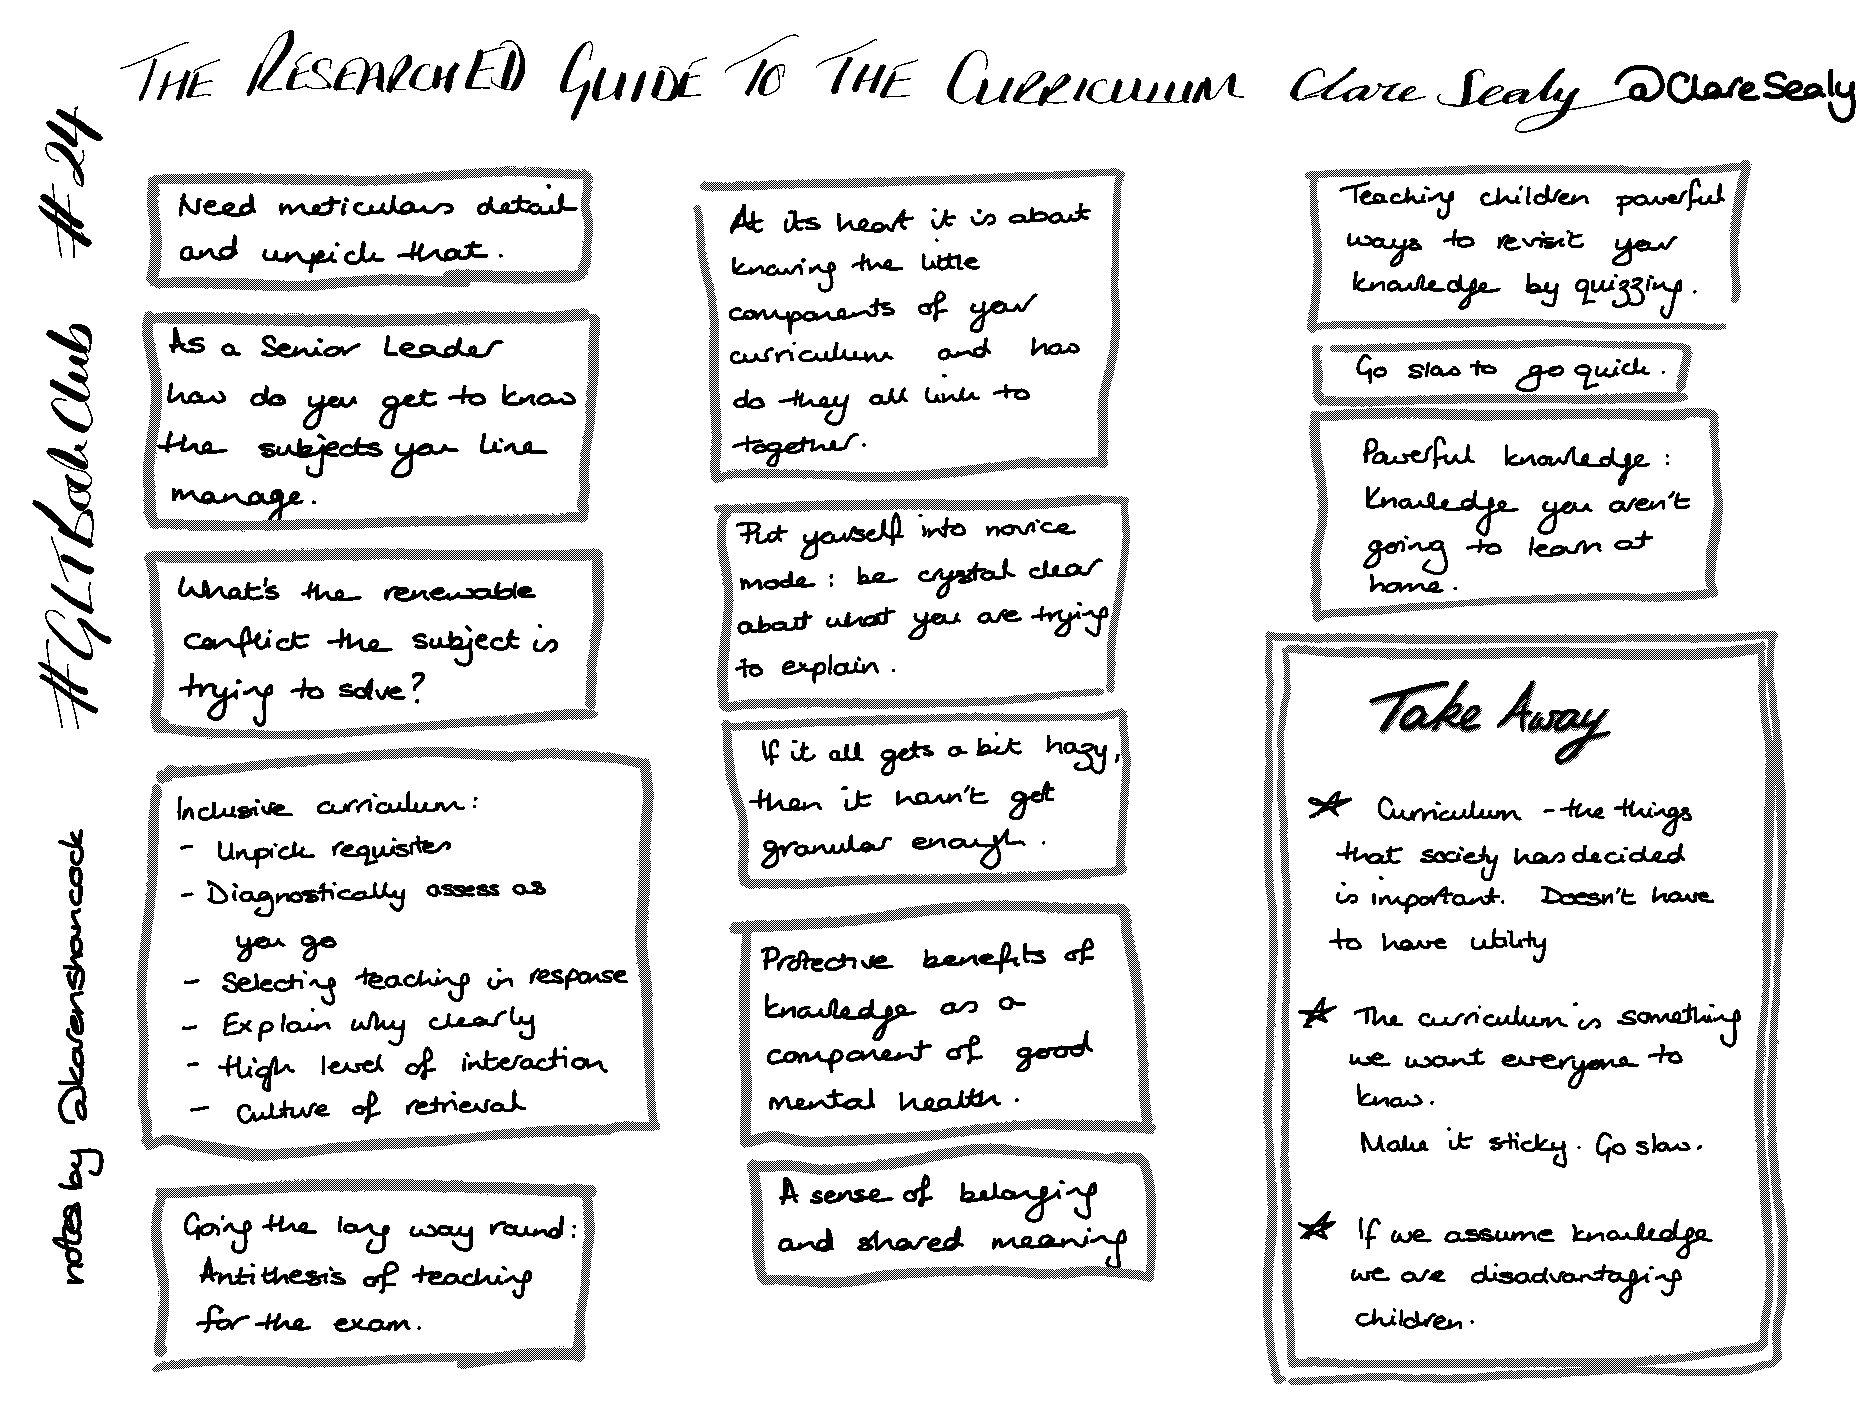 THE RESEARCHED GUIDE TO THE CURRICULUM Clare Sealy @ClareSealy
#GLTBookClub #24
notes by @karenshancock
Need meticulous detail
and unpick that.
As a Senior Leader
how do you get to know
the subjects you line
manage.
What's the renewable
conflict the subject is
trying to solve?
Inclusive curriculum:
- Unpick requisites
- Diagnostically assess as
you go
- Selecting teaching in response
- Explain why clearly
- High level of interaction
- Culture of retrieval
Going the long way round:
Antithesis of teaching
for the exam.
At its heart it is about
knowing the little
components of your
curriculum and how
do they all link to
together.
Put yourself into novice
mode: be crystal clear
about what you are trying
to explain.
If it all gets a bit hazy,
then it hasn't get
granular enough.
Protective benefits of
knowledge as a
component of good
mental health.
A sense of belonging
and shared meaning
Teaching children powerful
ways to revisit your
knowledge by quizzing.
Go slow to go quick.
Powerful knowledge:
Knowledge you aren't
going to learn at
home.
Take Away
★ Curriculum - the things
that society has decided
is important. Doesn't have
to have utility
★ The curriculum is something
we want everyone to
know.
Make it sticky. Go slow.
★ If we assume knowledge
we are disadvantaging
children.